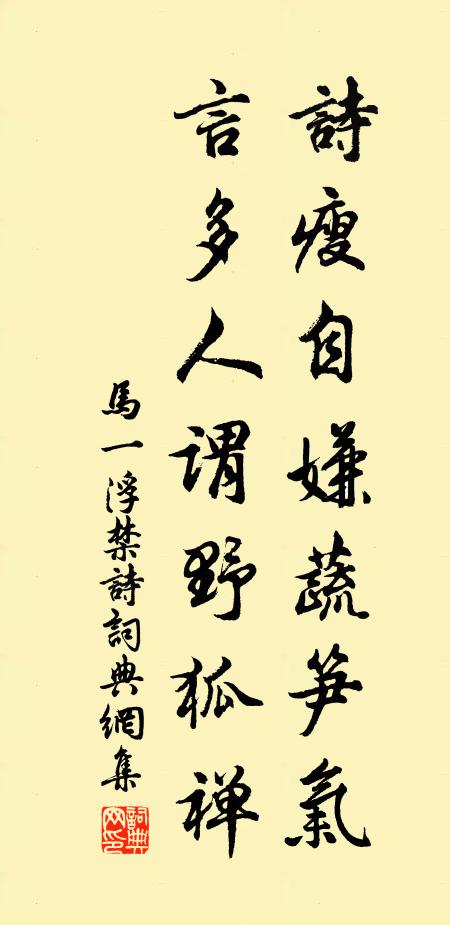 詩瘦自嫌蔬笋氣
言多人謂野狐禅
馬一浮禁詩詞典網集
詞典网印